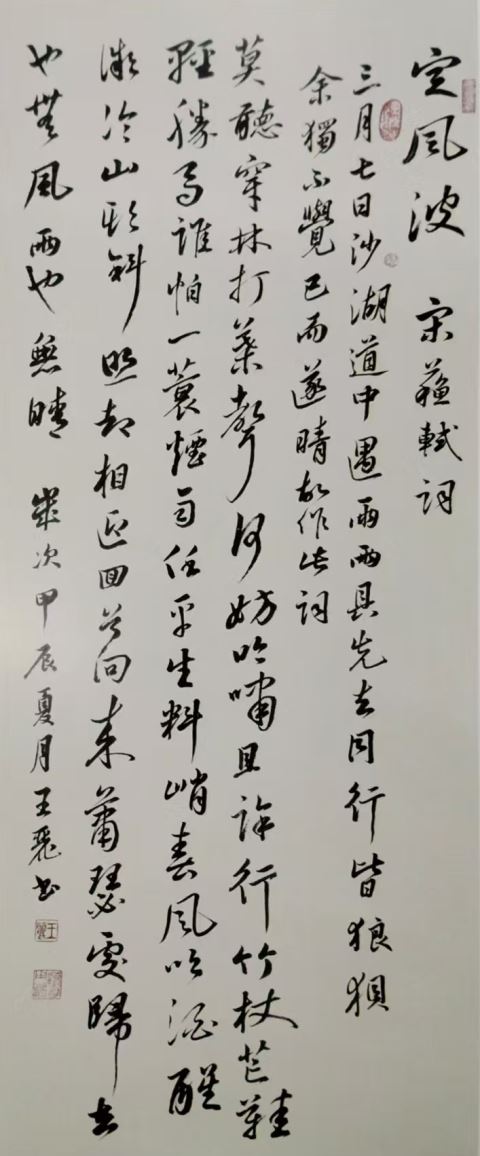 定風波 宋蘇軾詞
三月七日沙湖道中遇雨雨具先去同行皆狼狽
余獨不覺已而遂晴故作此詞
莫聽穿林打葉聲何妨吟嘯且徐行竹杖芒鞋
輕勝馬誰怕一蓑煙雨任平生料峭春風吹酒醒
微冷山頭斜照却相迎回首向來蕭瑟處歸去
也無風雨也無晴 歲次甲辰夏月王書